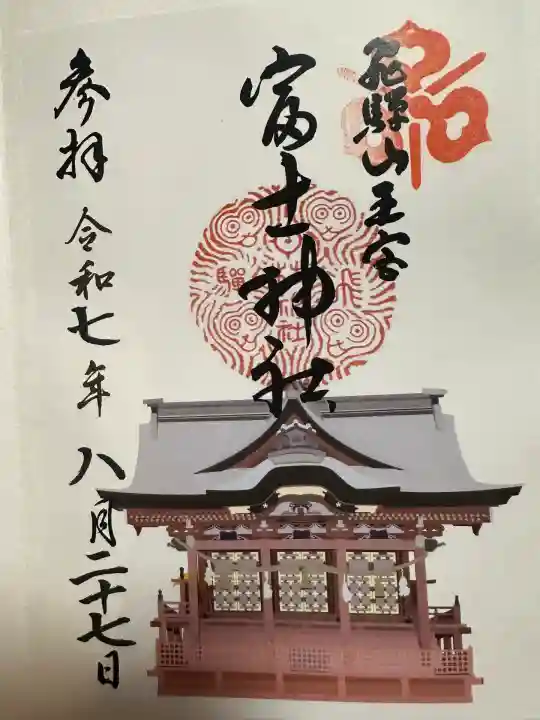 飛騨山王宮
富士神社
参拝
令和七年八月二十七日